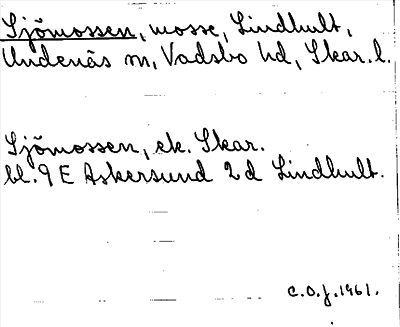 Sjömossen, mosse, Lindhult,
Undenäs sn, Vadsbo hd, Skar. l.
Sjömossen, ek. Skar.
bl. 9 E Askersund 2 d Lindhult.
C.O.J. 1961.